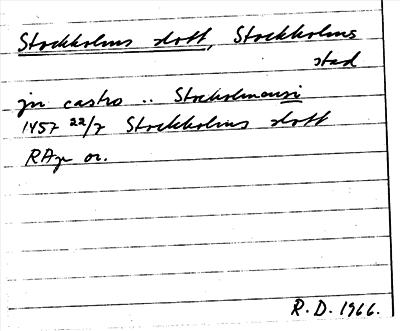 Stockholms slott, Stockholms
stad
jn castro .. Stocholmensi
1457 22/7 Stockholms slott
RAp or.
R.D. 1966.